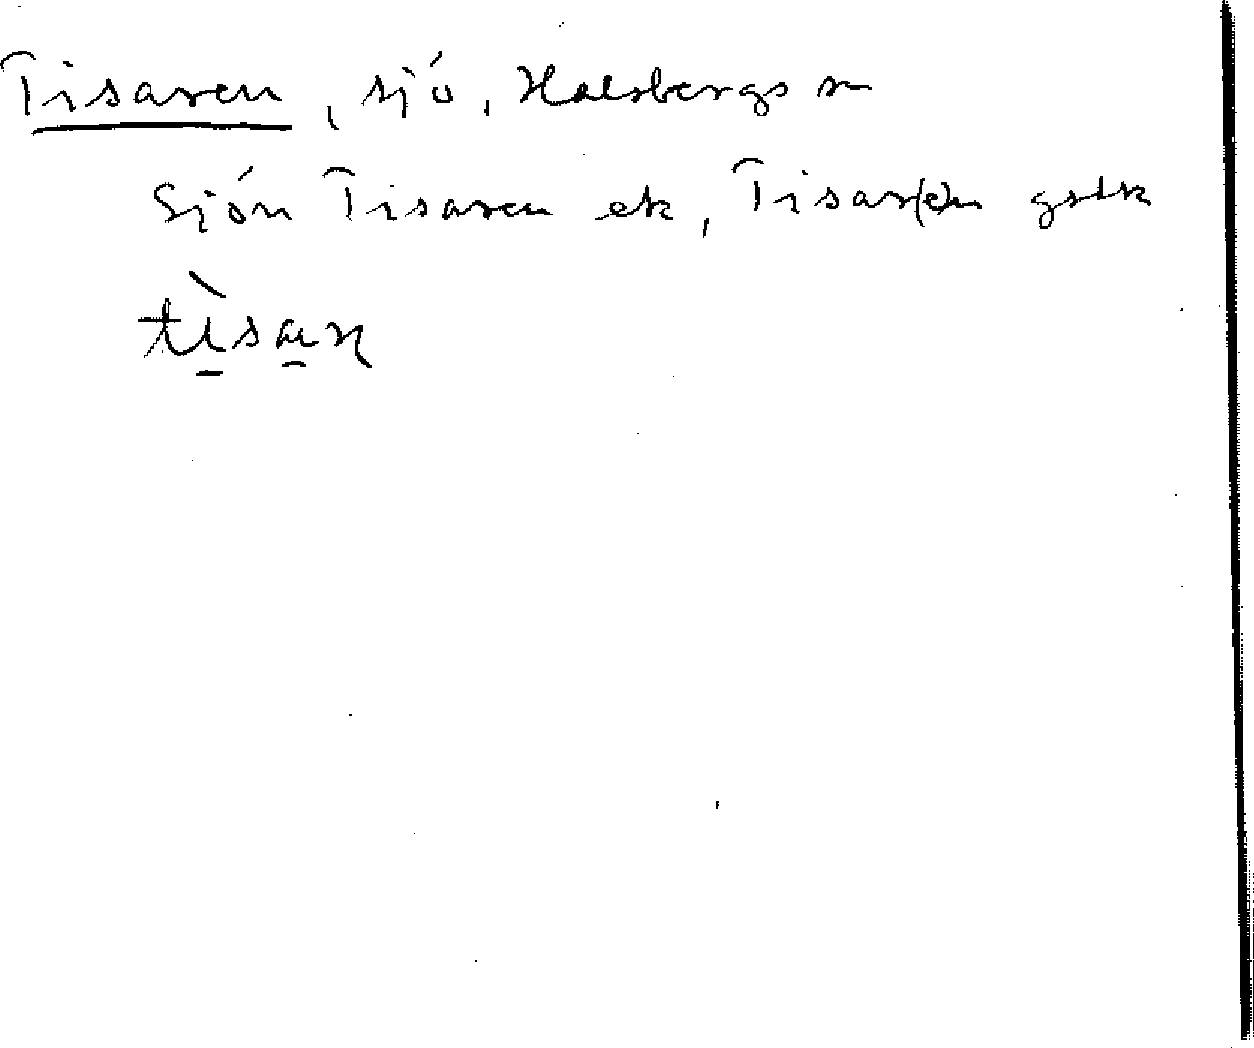 Tisaren, sjö, Hallsbergs sn
Sjön Tisaren ek, Tisar(e)n gstk
tìsaɳ